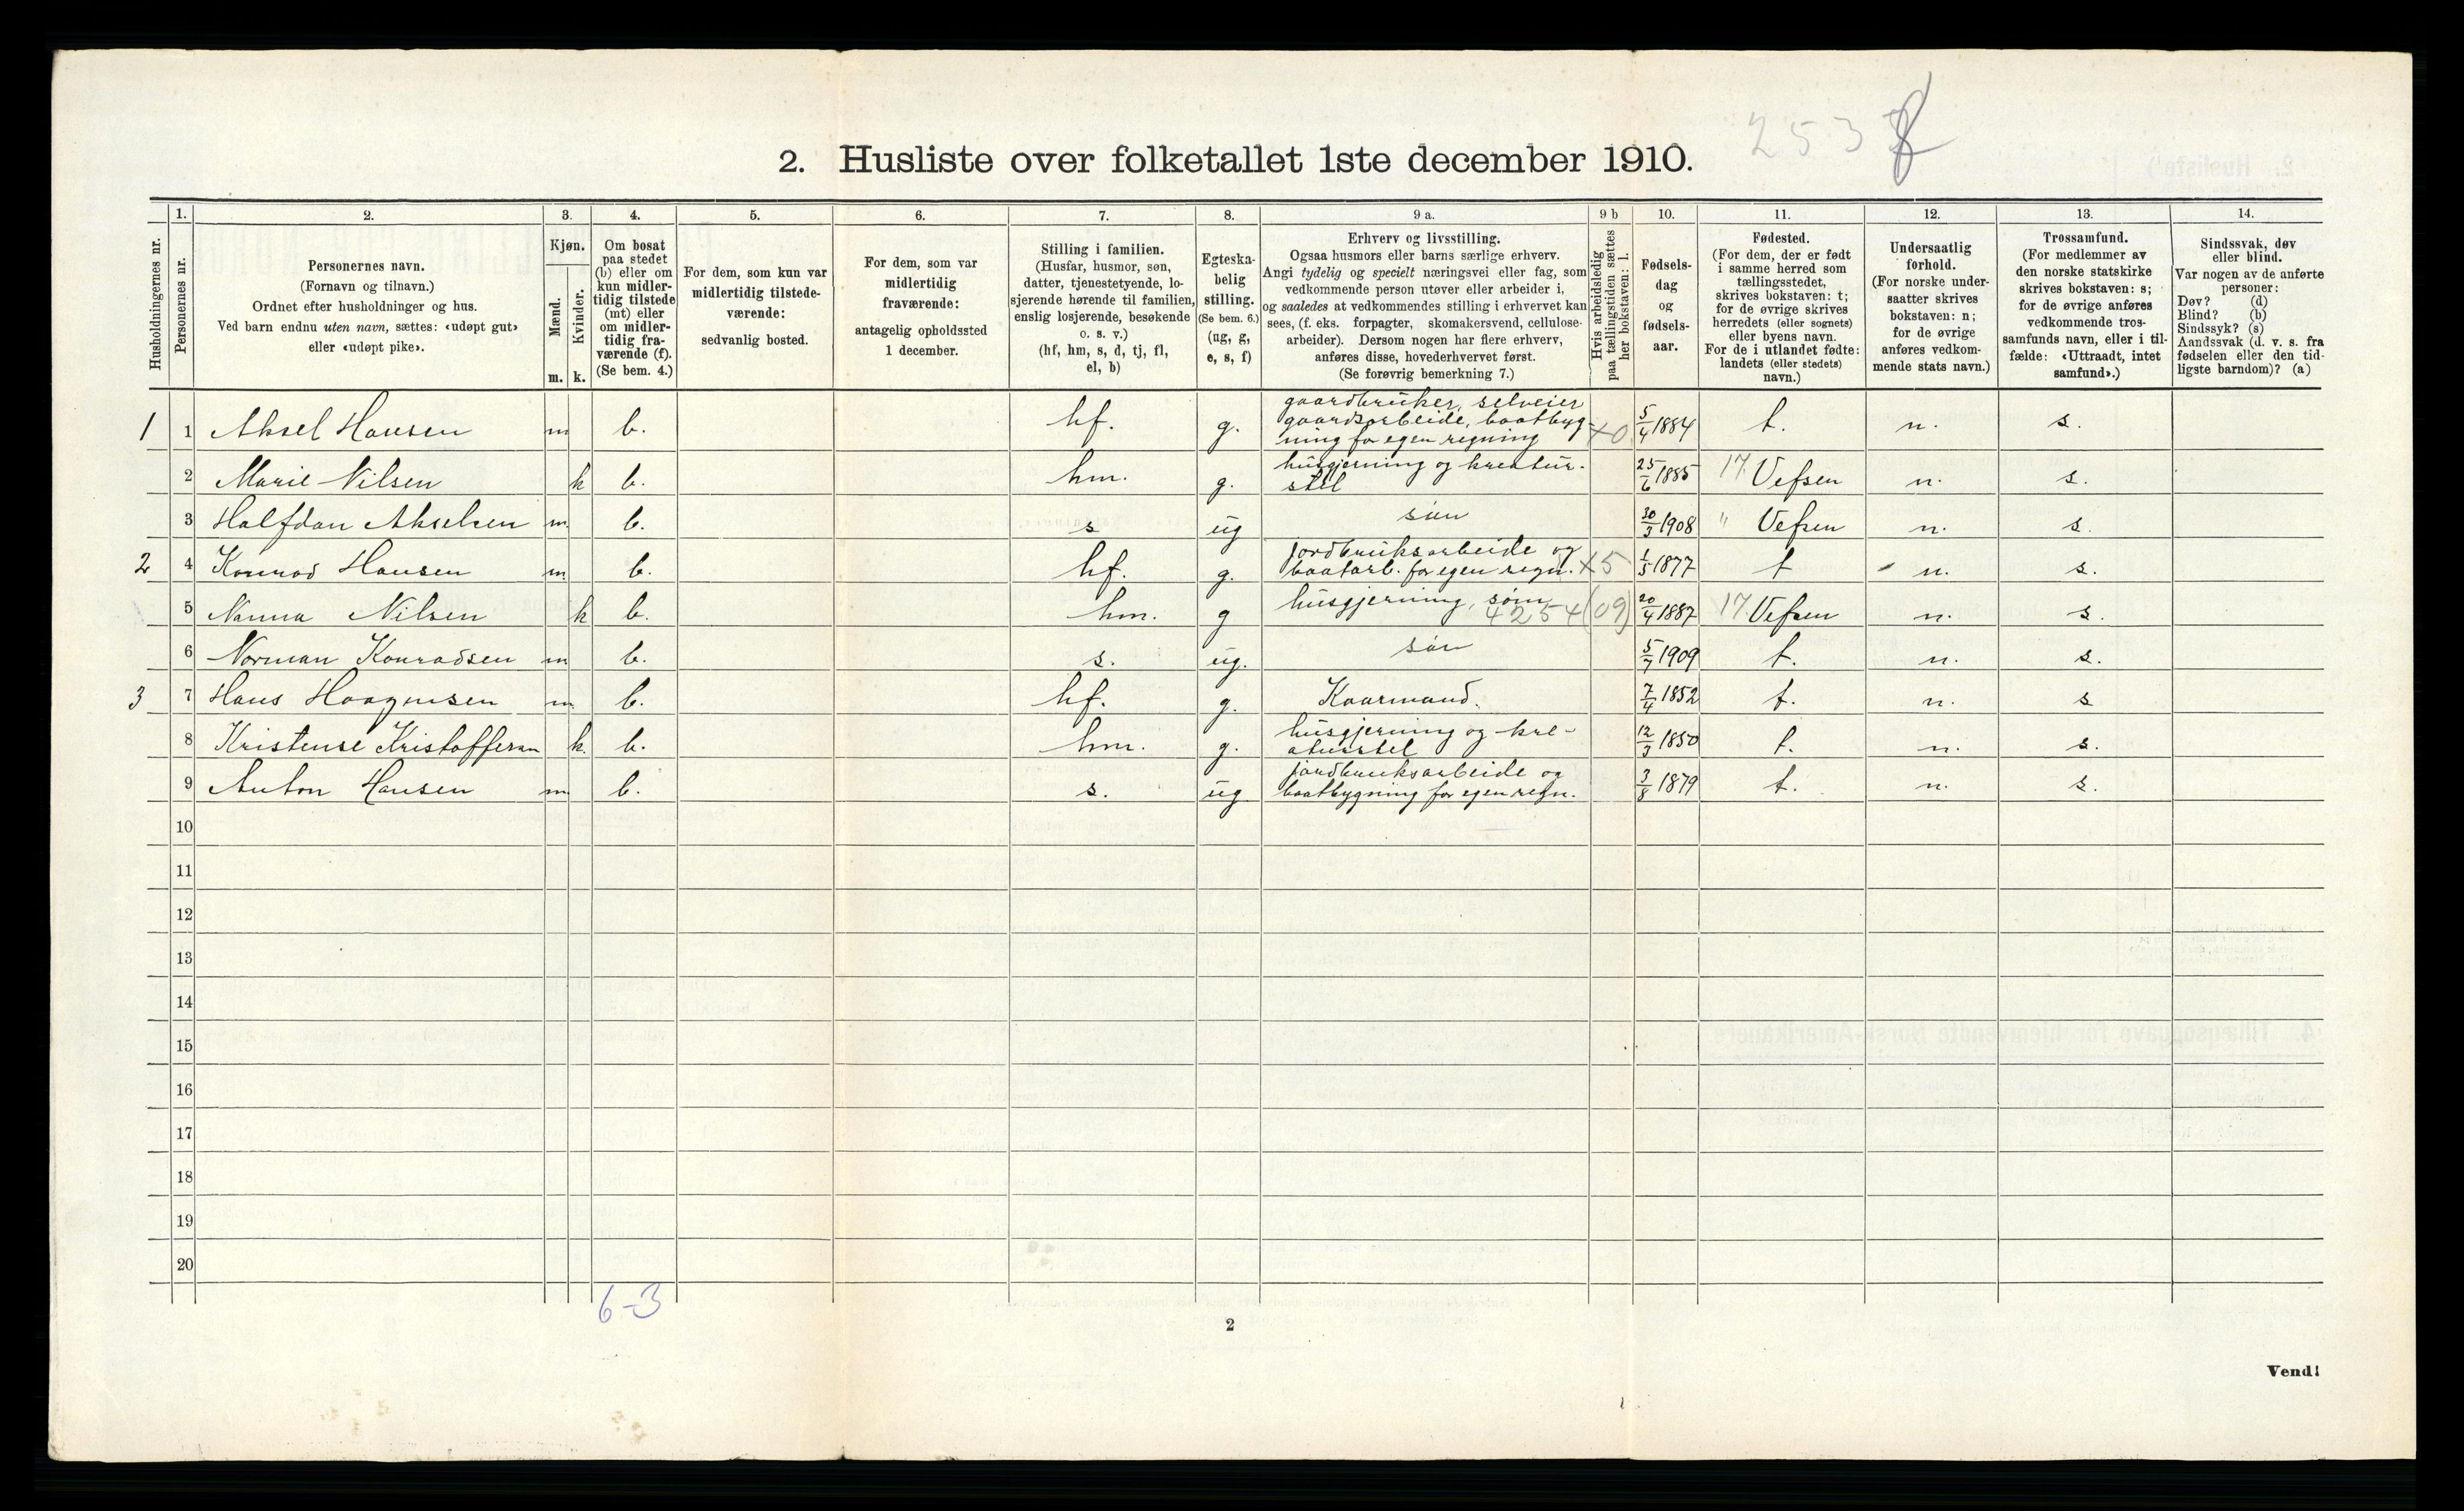 2. Husliste over folketallet 1ste december 1910.
Husholdningernes nr.
1.
Personernes nr.
2.
Personernes navn.
(Fornavn og tilnavn.)
Ordnet efter husholdninger og hus.
Ved barn endnu uten navn, sættes: «udøpt gut»
eller «udøpt pike».
3.
Kjøn.
Mænd.
m.
Kvinder.
k.
4.
Om bosat
paa stedet
(b) eller om
kun midler-
tidig tilstede
(mt) eller
om midler-
tidig fra-
værende (f).
(Se bem. 4.)
5.
For dem, som kun var
midlertidig tilstede-
værende:
sedvanlig bosted.
6.
For dem, som var
midlertidig
fraværende:
antagelig opholdssted
1 december.
7.
Stilling i familien.
(Husfar, husmor, søn,
datter, tjenestetyende, lo-
sjerende hørende til familien,
enslig losjerende, besøkende
o. s. v.)
(hf, hm, s, d, tj, fl,
el, b)
8.
Egteska-
belig
stilling.
(Se bem. 6.)
(ug, g,
e, s, f)
9 a.
Erhverv og livsstilling.
Ogsaa husmors eller barns særlige erhverv.
Angi tydelig og specielt næringsvei eller fag, som
vedkommende person utøver eller arbeider i,
og saaledes at vedkommendes stilling i erhvervet kan
sees, (f. eks. forpagter, skomakersvend, cellulose-
arbeider). Dersom nogen har flere erhverv,
anføres disse, hovederhvervet først.
(Se forøvrig bemerkning 7.)
9 b
Hvis arbeidsledig
paa tællingstiden sættes
her bokstaven: l.
10.
Fødsels-
dag
og
fødsels-
aar.
11.
Fødested.
(For dem, der er født
i samme herred som
tællingsstedet,
skrives bokstaven: t;
for de øvrige skrives
herredets (eller sognets)
eller byens navn.
For de i utlandet fødte:
landets (eller stedets)
navn.)
12.
Undersaatlig
forhold.
(For norske under-
saatter skrives
bokstaven: n;
for de øvrige
anføres vedkom-
mende stats navn.)
13.
Trossamfund.
(For medlemmer av
den norske statskirke
skrives bokstaven: s;
for de øvrige anføres
vedkommende tros-
samfunds navn, eller i til-
fælde: «Uttraadt, intet
samfund».)
14.
Sindssvak, døv
eller blind.
Var nogen av de anførte
personer:
Døv? (d)
Blind? (b)
Sindssyk? (s)
Aandssvak (d. v. s. fra
fødselen eller den tid-
ligste barndom)? (a)
1 1 Aksel Hansen m b. hf. g. gaardbruker, selveier
gaardsarbeide, baatbyg-
ning for egen regning X0 5/4 1884 t. n. s.
2 Marie Nilsen k b. hm. g. husgjerning og kreatur-
stel 25/6 1885 17 Vefsen n. s.
3 Halfdan Akselsen m. b. s ug søn 30/3 1908 " Vefsen n. s.
2 4 Konrad Hansen m b. hf. g. jordbruksarbeide og
baatarb. for egen regn. X5 1/5 1877 t n. s.
5 Nanna Nilsen k b. hm. g husgjerning, søm
4254(09) 20/4 1887 17 Vefsen n. s.
6 Norman Konradsen m b. s. ug. søn 5/7 1909 t. n. s.
3 7 Hans Haagensen m. b. hf. g. Kaarmand. 7/4 1852 t. n. s
8 Kristense Kristoffersen k. b. hm. g. husgjerning og kre-
aturstel 12/3 1850 t. n. s.
9 Anton Hansen m b. s. ug jordbruksarbeide og
baatbygning for egen regn. 3/8 1879 t. n. s.
10
11
12
13
14
15
16
17
18
19
20
6-3
2
Vend!